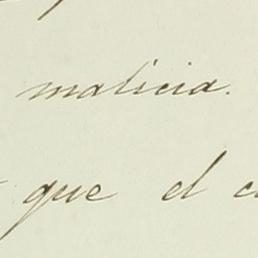 malicia.
que el